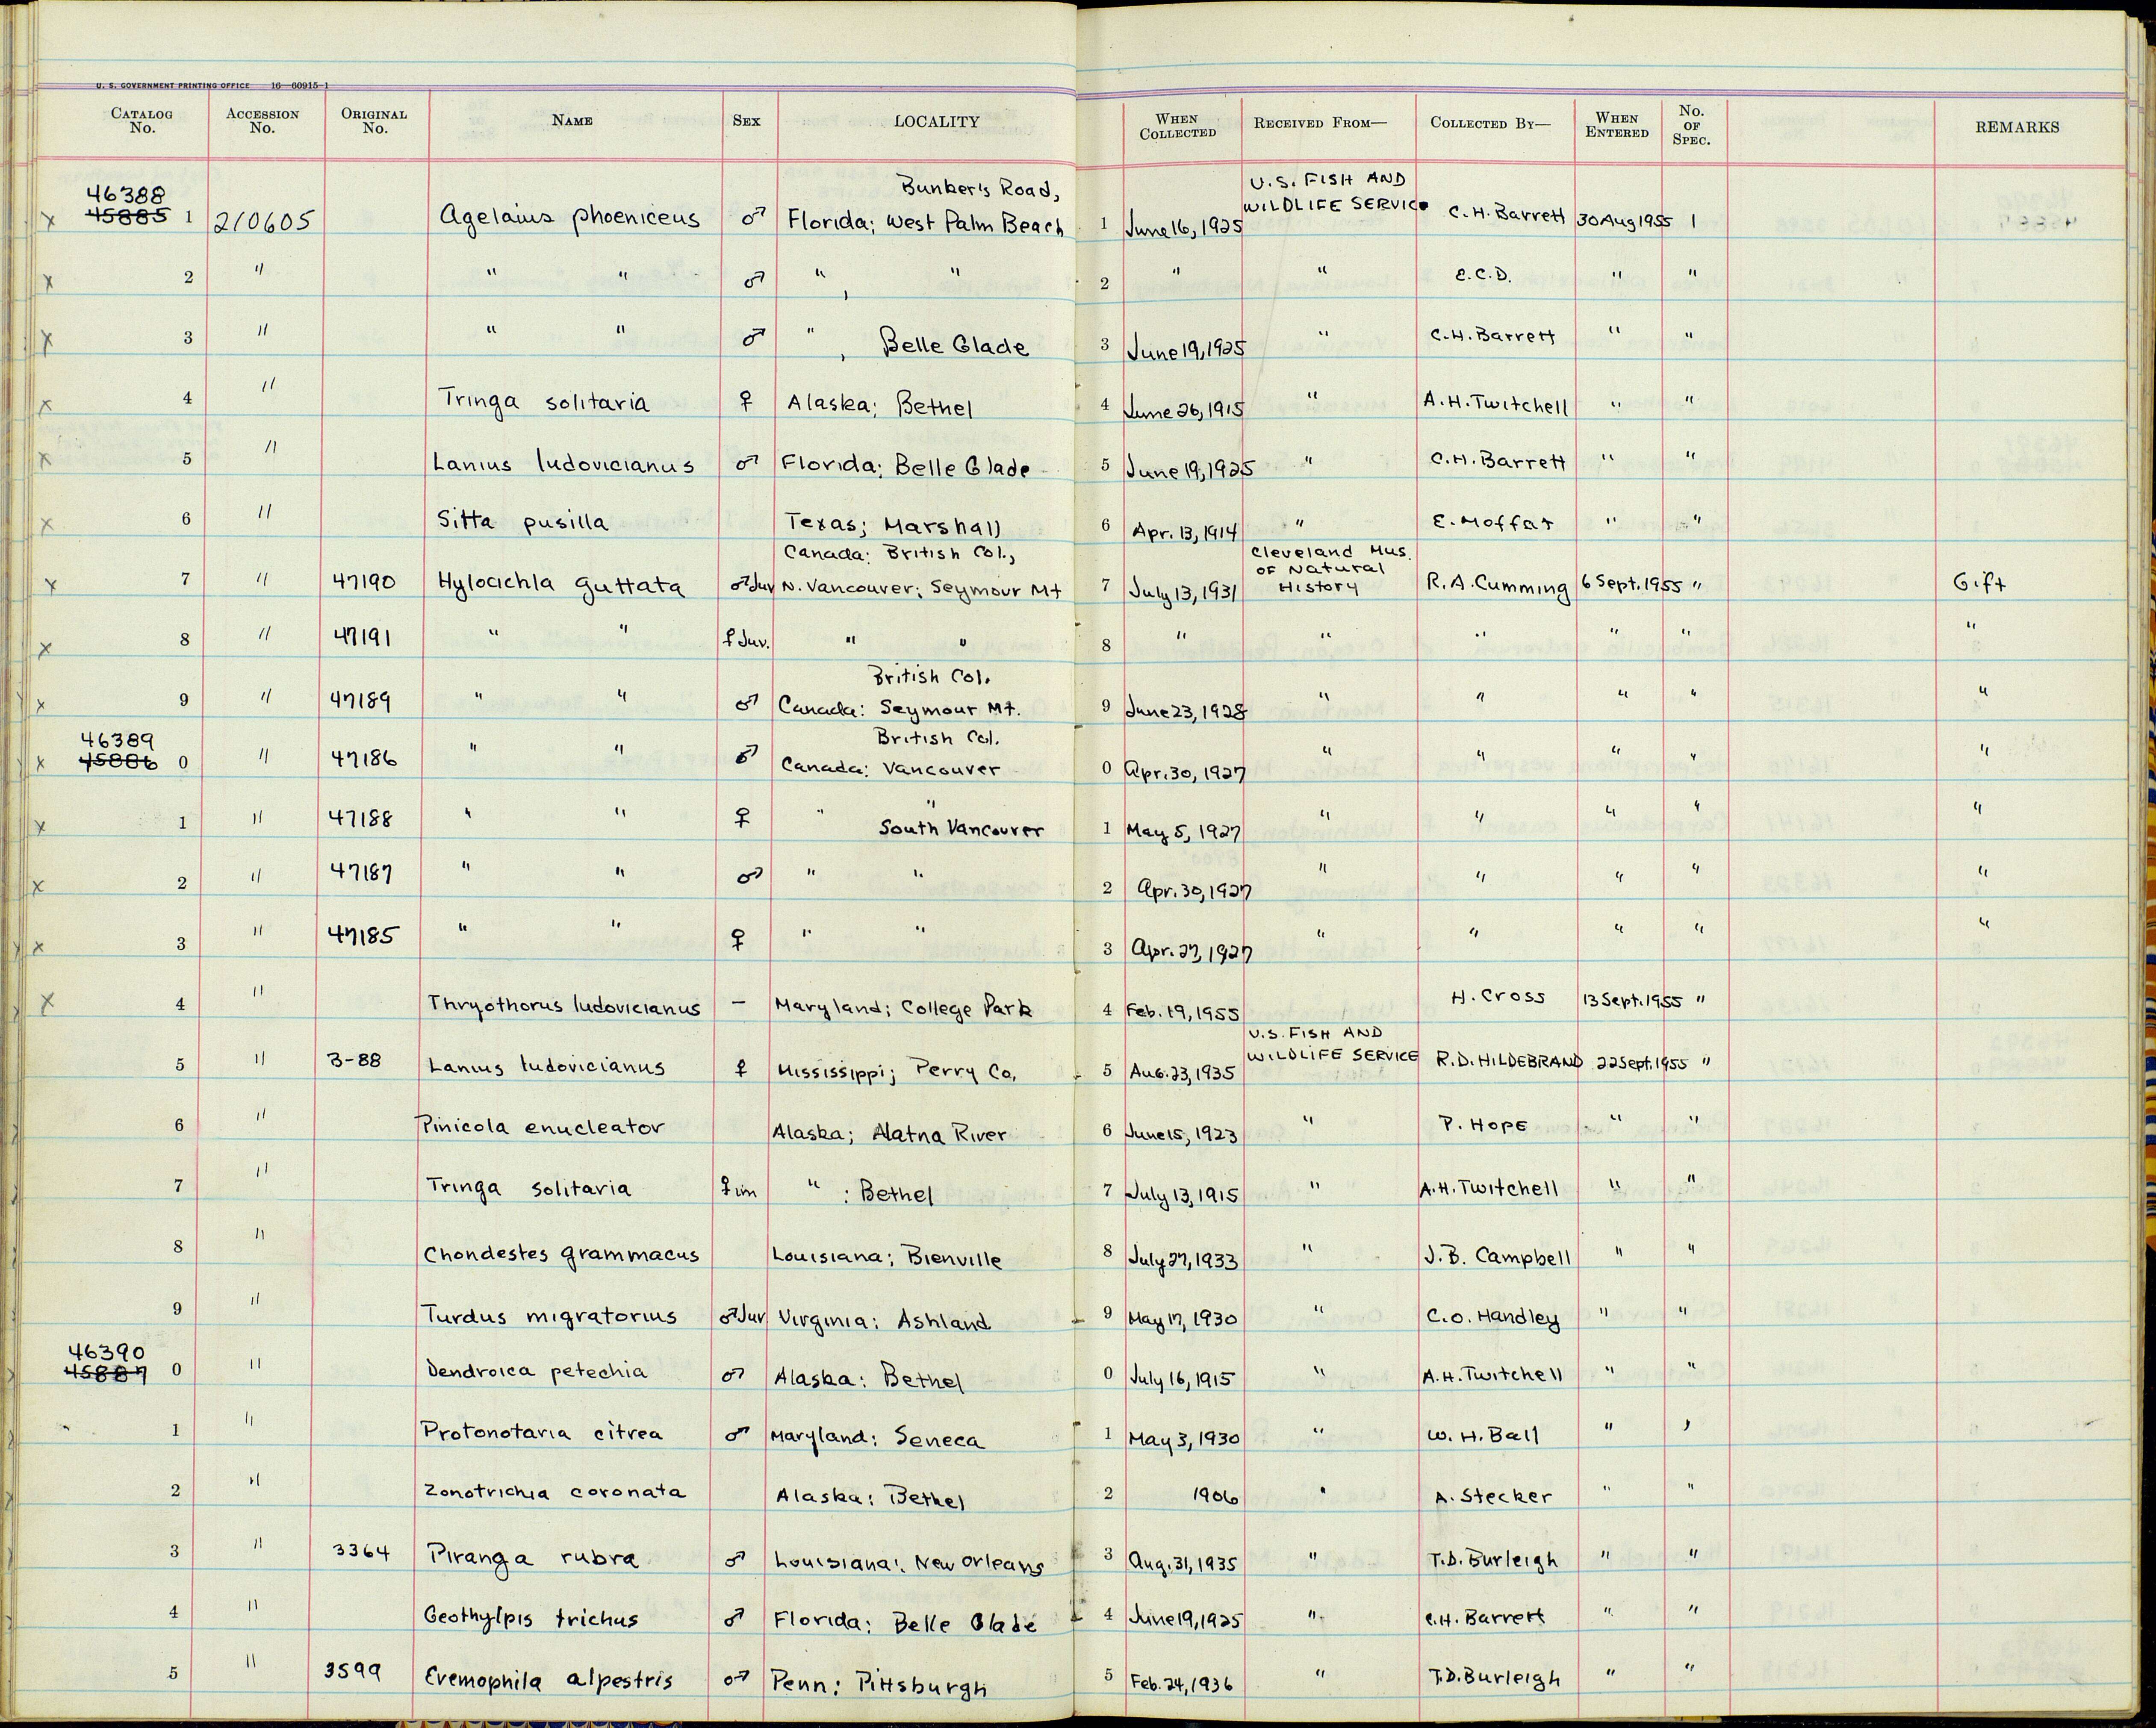 U. S. GOVERNMENT PRINTING OFFICE 16—60915-1
CATALOG No. ACCESSION No. ORIGINAL No. NAME SEX LOCALITY WHEN COLLECTED RECEIVED FROM— COLLECTED BY— WHEN ENTERED No. OF SPEC. REMARKS
46388 Bunker's Road, U.S. FISH AND
x 45885 1 210605 Agelaius phoeniceus ♂ Florida; West Palm Beach 1 June 16, 1925 WILDLIFE SERVICE C.H. Barrett 30 Aug 1955 1
x 2 " " " ♂ " , " 2 " " E.C.D. " "
x 3 " " " ♂ " , Belle Glade 3 June 19, 1925 " C.H. Barrett " "
x 4 " Tringa solitaria ♀ Alaska; Bethel 4 June 26, 1915 " A.H. Twitchell " "
x 5 " Lanius ludovicianus ♂ Florida; Belle Glade 5 June 19, 1925 " C.H. Barrett " "
x 6 " Sitta pusilla Texas; Marshall 6 Apr. 13, 1914 " E. Moffat " "
Canada: British Col., Cleveland Mus. of Natural
x 7 " 47190 Hylocichla guttata ♂ Juv N. Vancouver; Seymour Mt 7 July 13, 1931 History R.A. Cumming 6 Sept. 1955 " Gift
x 8 " 47191 " " ♀ Juv. " " 8 " " " " " "
British Col.
x 9 " 47189 " " ♂ Canada: Seymour Mt. 9 June 23, 1928 " " " " "
46389 British Col.
x 45886 0 " 47186 " " ♂ Canada: Vancouver 0 Apr. 30, 1927 " " " " "
x 1 " 47188 " " ♀ " " South Vancouver 1 May 5, 1927 " " " " "
x 2 " 47187 " " ♂ " " 2 Apr. 30, 1927 " " " " "
x 3 " 47185 " " ♀ " " 3 Apr. 27, 1927 " " " " "
x 4 " Thryothorus ludovicianus – Maryland; College Park 4 Feb. 19, 1955 H. Cross 13 Sept. 1955 "
U.S. FISH AND
5 " 3-88 Lanius ludovicianus ♀ Mississippi; Perry Co. 5 Aug. 23, 1935 WILDLIFE SERVICE R.D. HILDEBRAND 22 Sept. 1955 "
6 " Pinicola enucleator Alaska; Alatna River 6 June 15, 1923 " P. HOPE " "
7 " Tringa solitaria ♀ im " : Bethel 7 July 13, 1915 " A.H. Twitchell " "
8 " Chondestes grammacus Louisiana; Bienville 8 July 27, 1933 " J.B. Campbell " "
9 " Turdus migratorius ♂ Juv Virginia: Ashland 9 May 17, 1930 " C.O. Handley " "
46390
45887 0 " Dendroica petechia ♂ Alaska: Bethel 0 July 16, 1915 " A.H. Twitchell " "
1 " Protonotaria citrea ♂ Maryland: Seneca 1 May 3, 1930 " W.H. Ball " "
2 " Zonotrichia coronata Alaska: Bethel 2 1906 " A. Stecker " "
3 " 3364 Piranga rubra ♂ Louisiana: New Orleans 3 Aug. 31, 1935 " T.D. Burleigh " "
4 " Geothylpis trichus ♂ Florida; Belle Glade 4 June 19, 1925 " C.H. Barrett " "
5 " 3599 Eremophila alpestris ♂ Penn: Pittsburgh 5 Feb. 24, 1936 " T.D. Burleigh " "